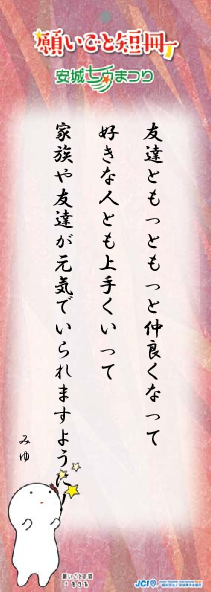 願いごと短冊
安城七夕まつり
友達ともっともっと仲良くなって
好きな人とも上手くいって
家族や友達が元気でいられますよう
みゆ
願いごと短冊
JCI